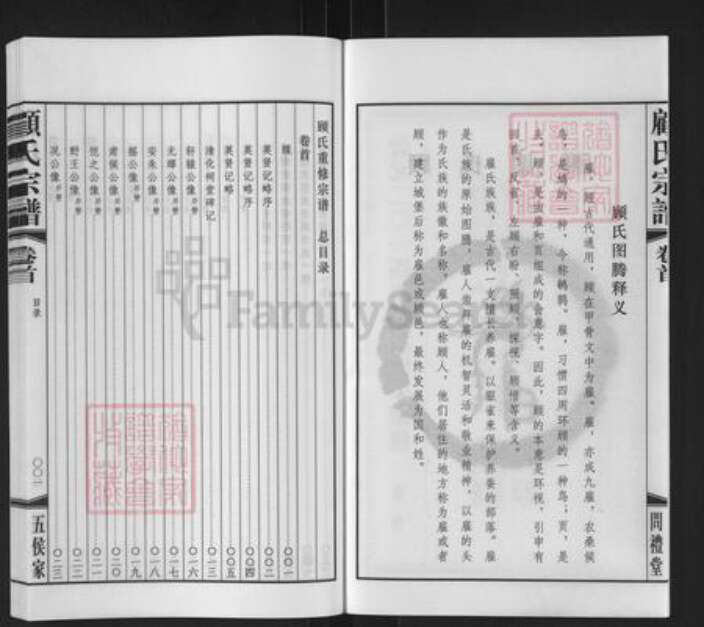 顾氏宗谱
卷首
問禮堂
顾氏图腾释义
雇、顾古代通用,顾在甲骨文中为雇。雇,亦成九雇,农桑候
鸟,是鳸的一种,今称鹌鹑。雇,习惯四周环顾的一种鸟;页,是
头。顾,是由雇和页组成的会意字。因此,顾的本意是环视,引申有
回首、反省、左顾右盼、照顾、探视、顾惜等含义。
雇氏族族,是古代一支擅长养雇、以驱雀来保护养蚕的部落。雇
是氏族的原始图腾,雇人崇拜雇的机智灵活和敬业精神,以雇的头
作为氏族的族徽和名称,雇人也称顾人,他们居住的地方称为雇或者
顾,建立城堡后称为雇邑或顾邑,最终发展为国和姓。
顾氏重修宗谱 总目录
卷首
英贤记略序 〇〇二
英贤记略序 〇〇四
英贤记略 〇〇五
清化祠堂碑记 〇一三
轩辕公像 并赞 〇一六
元公像 并赞 〇一七
安朱公像 并赞 〇一八
摇公像 并赞 〇一九
肃侯公像 并赞 〇二〇
恺之公像 并赞 〇二一
野王公像 并赞 〇二二
况公像 并赞 〇二三
顧氏宗譜
卷首
目录
〇〇一
五侯家
FamilySearch